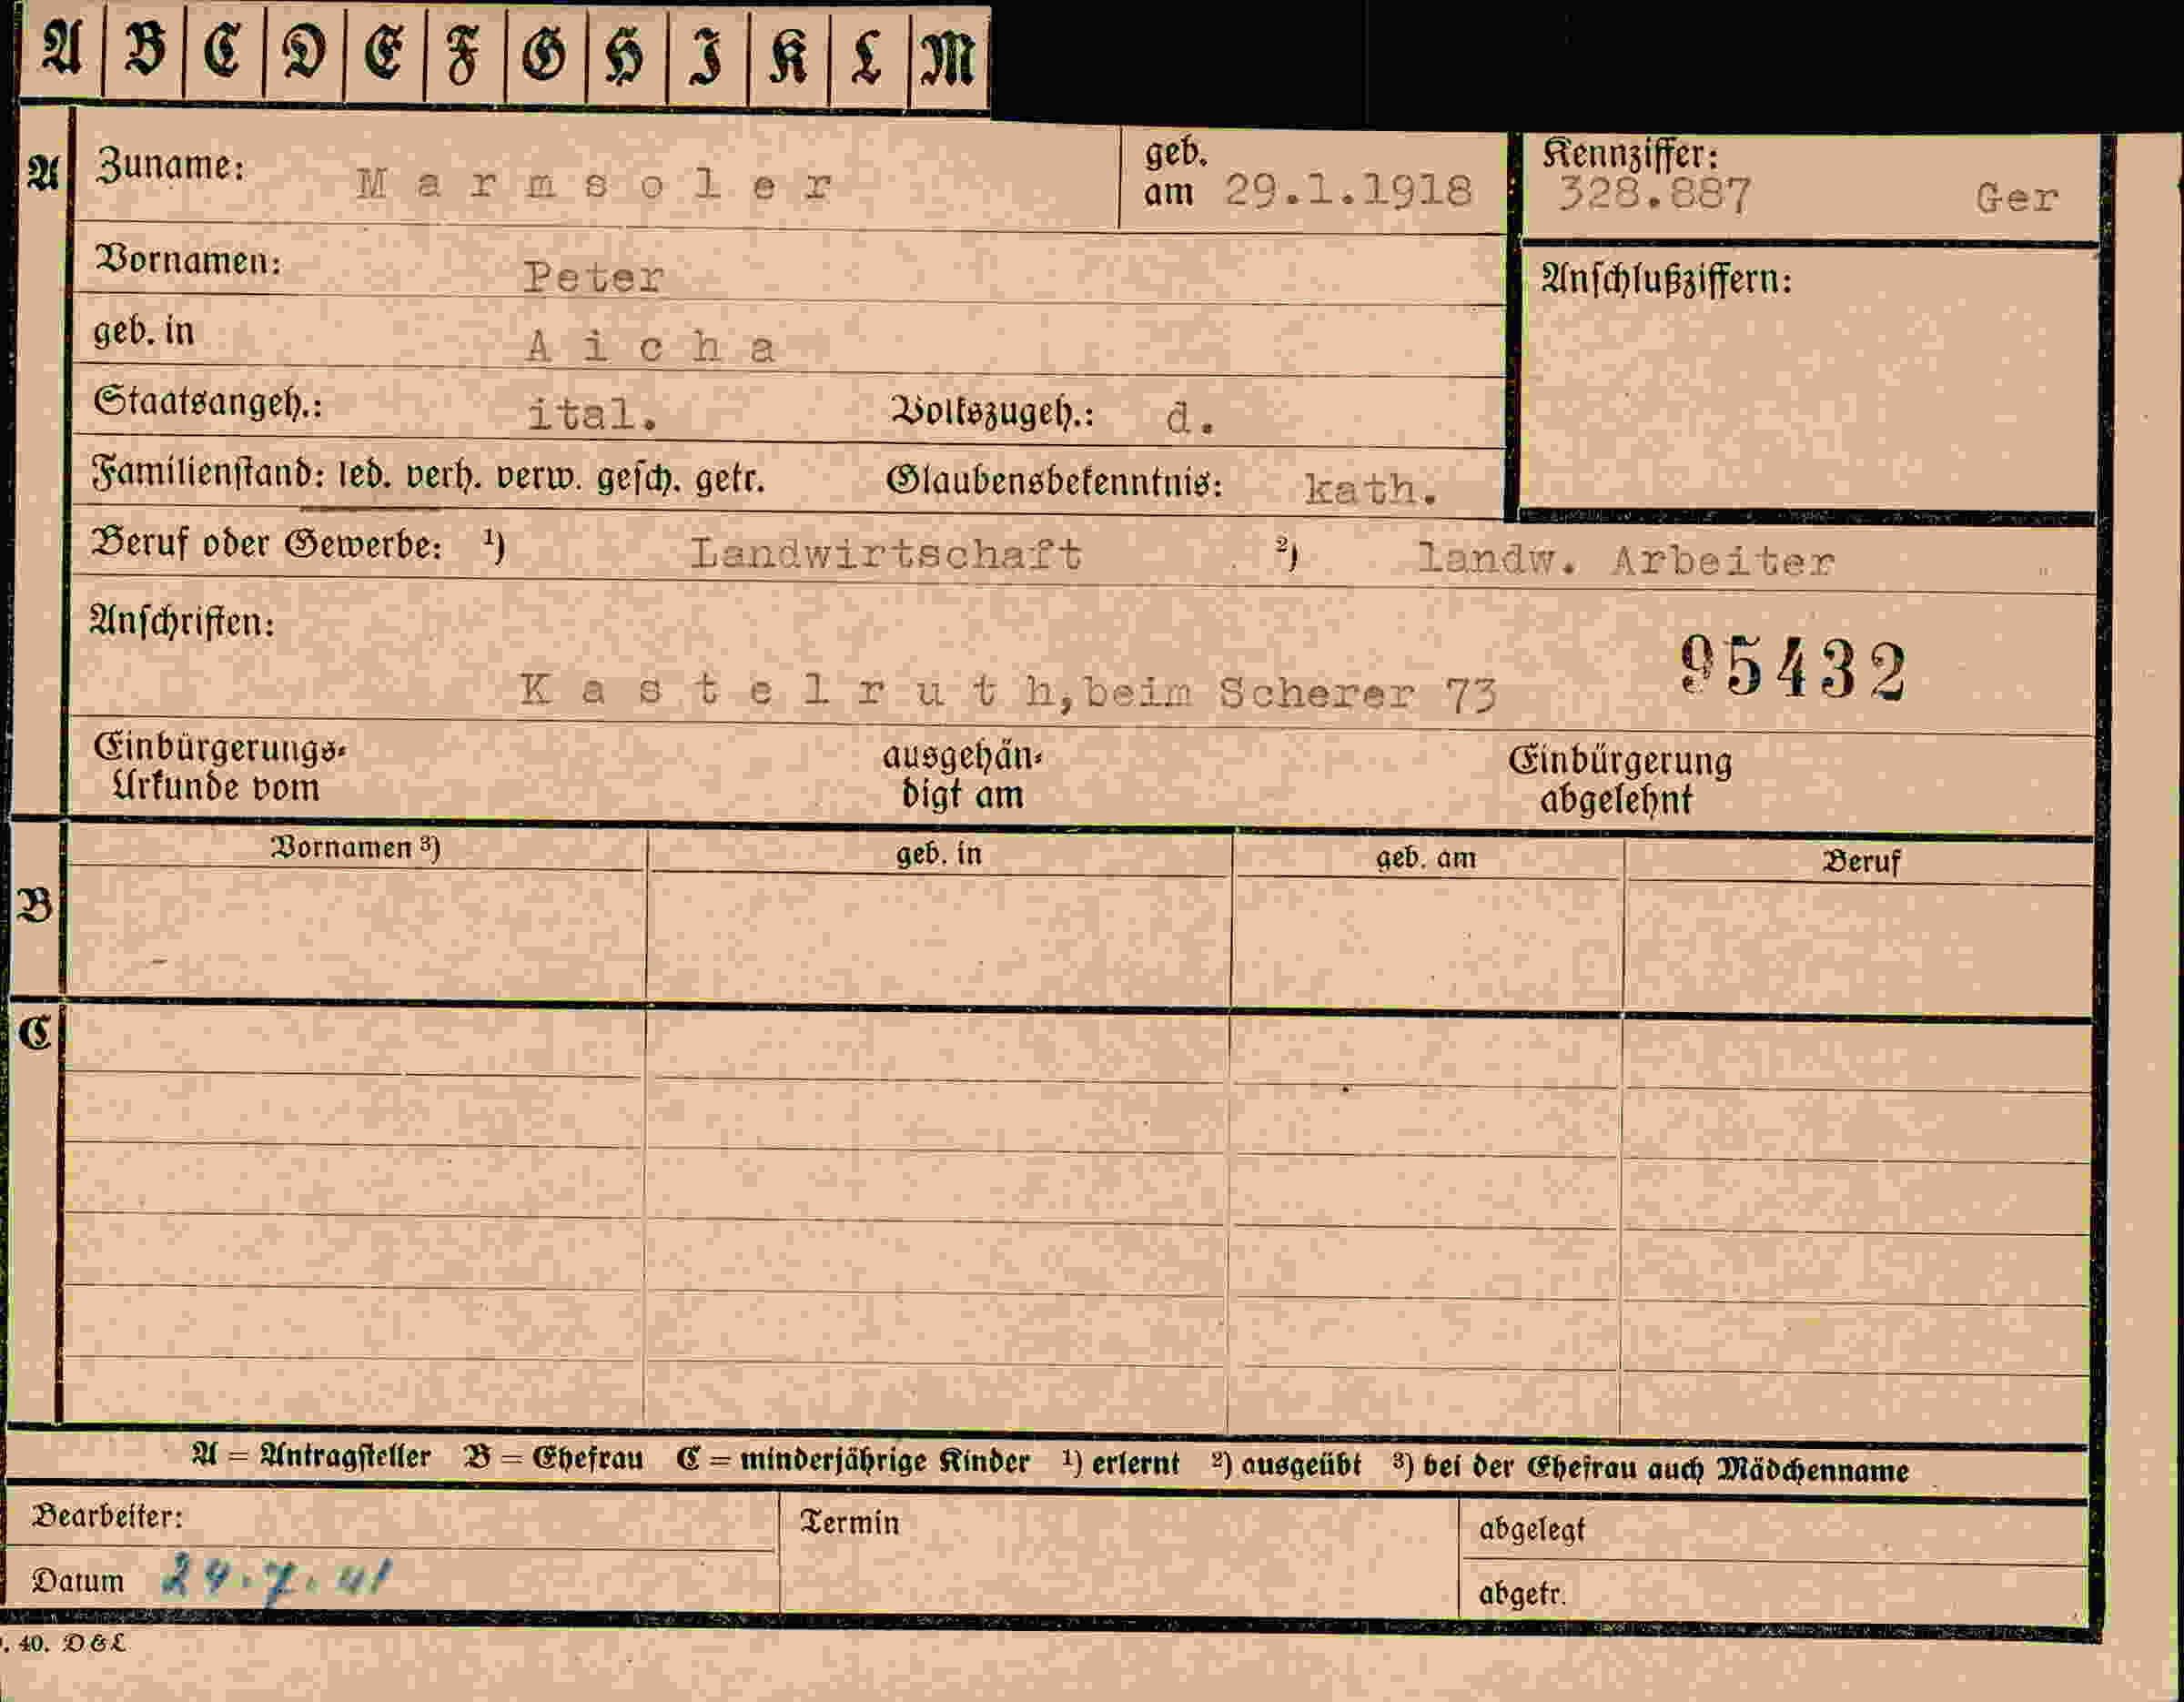 A B C D E F G H I K L M
A Zuname: Marmsoler geb. am 29.1.1918 Kennziffer: 328.887 Ger
Vornamen: Peter Anschlußziffern:
geb. in Aicha
Staatsangeh.: ital. Volkszugeh.: d.
Familienstand: led. verh. verw. gesch. getr. Glaubensbekenntnis: kath.
Beruf oder Gewerbe: ¹) Landwirtschaft ²) landw. Arbeiter
Anschriften:
Kastelruth, beim Scherer 73 95432
Einbürgerungs- ausgehän- Einbürgerung
Urkunde vom digt am abgelehnt
Vornamen ³) geb. in geb. am Beruf
B
C
A = Antragsteller B = Ehefrau C = minderjährige Kinder ¹) erlernt ²) ausgeübt ³) bei der Ehefrau auch Mädchenname
Bearbeiter: Termin abgelegt
Datum 24.7.41 abgetr.
. 40. D & L